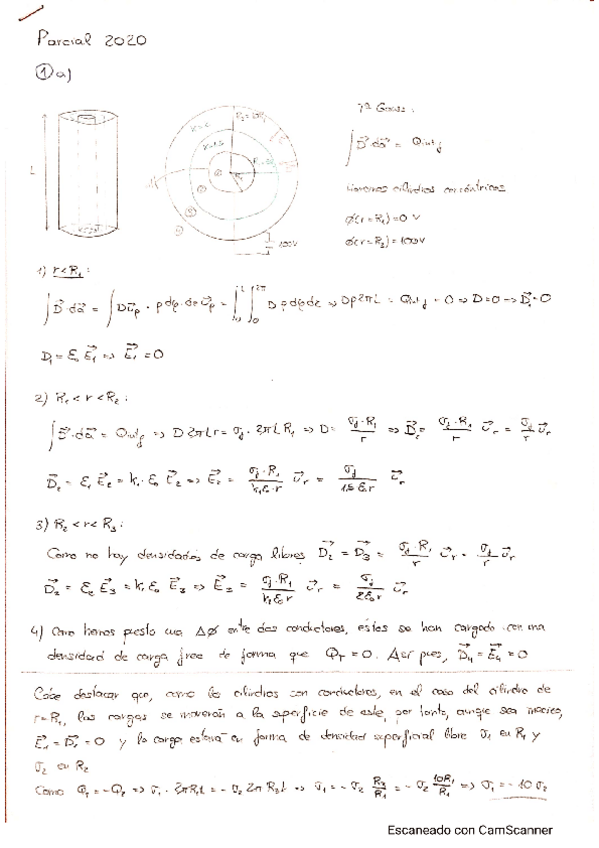 Parcial 2020
① a)
Tª Gauss:
∫ D⃗·da⃗ = Q int f
L
100V
cilindros concéntricos
ϕ(r=R₁)=0 V
ϕ(r=R₂)=100V
1) r<R₁:
∫ D⃗·da⃗ = ∫ D u⃗ρ · ρ dφ·dz u⃗ρ = ∫₀ᴸ ∫₀²π D ρ dφ dz ⇒ Dρ2πL = Q int f = 0 ⇒ D=0 ⇒ D⃗₁=0
D₁ = ε₀ E⃗₁ ⇒ E⃗₁ = 0
2) R₁ < r < R₂:
∫ D⃗·da⃗ = Q int f ⇒ D 2πLr = σf · 2πL R₁ ⇒ D = σf·R₁/r ⇒ D⃗₂ = σf·R₁/r u⃗r = σf/r u⃗r
D⃗₂ = ε₁ E⃗₂ = k₁·ε₀ E⃗₂ ⇒ E⃗₂ = σf·R₁/k₁ε₀·r u⃗r = σf/1.5 ε₀ r u⃗r
3) R₂ < r < R₃:
Como no hay densidades de carga libres D⃗₂ = D⃗₃ = σf·R₁/r u⃗r = σf/r u⃗r
E⃗₃ = σf·R₁/k₁ε₀r u⃗r = σf/2ε₀r u⃗r
4) Como hemos puesto una Δϕ entre dos conductores, estos se han cargado con una
densidad de carga free de forma que QT = 0. Así pues, D⃗₄ = E⃗₄ = 0
Cabe destacar que, como los cilindros son conductores, en el caso del cilindro de
r=R₁, las cargas se moverán a la superficie de este, por tanto, aunque sea macizo,
E⃗₁ = D⃗₁ = 0 y la carga estará en forma de densidad superficial libre σ₁ en R₁ y
σ₂ en R₂
Como Q₁ = -Q₂ ⇒ σ₁·2πR₁L = -σ₂ 2π R₂L ⇒ σ₁ = -σ₂ R₂/R₁ = -σ₂ 10R₁/R₁ ⇒ σ₁ = -10 σ₂
Escaneado con CamScanner